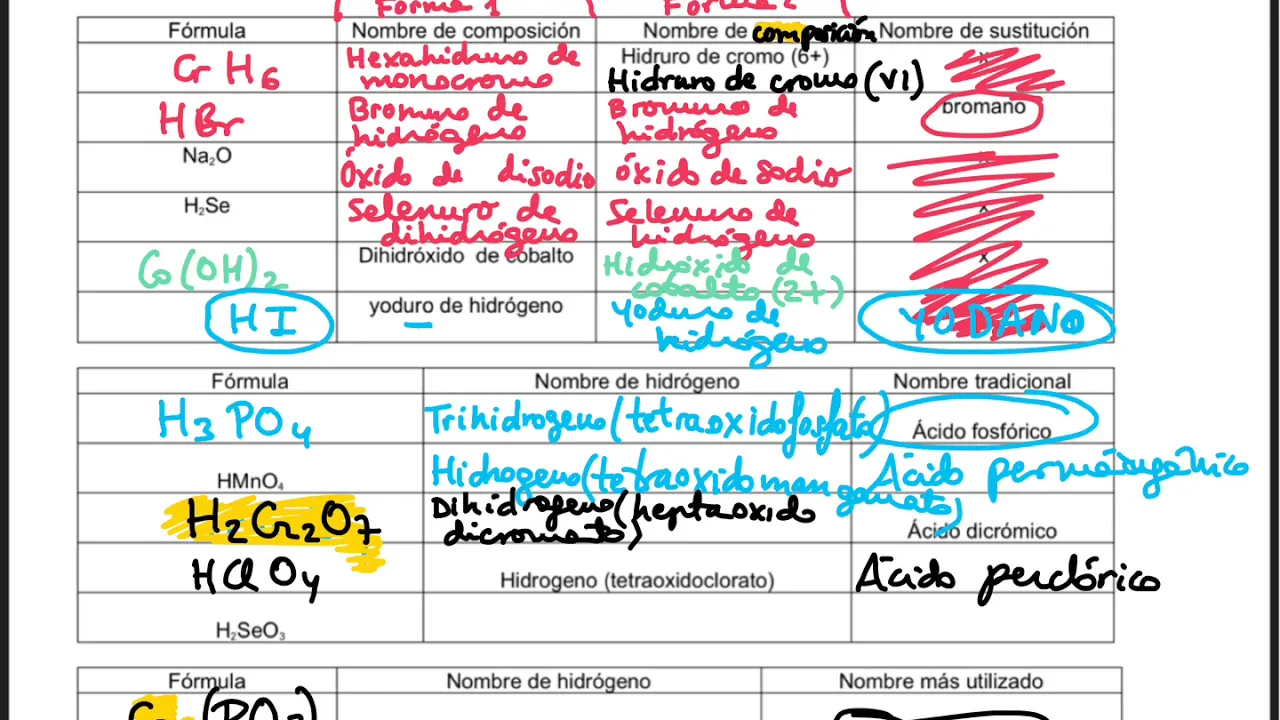 Forma 1 Forma 2
Fórmula Nombre de composición Nombre de composición Nombre de sustitución
CrH6 Hexahidruro de monocromo Hidruro de cromo (6+) x
Hidruro de cromo (VI)
HBr Bromuro de hidrógeno Bromuro de hidrógeno bromano
Na₂O Óxido de disodio óxido de sodio
H₂Se Selenuro de dihidrógeno Selenuro de hidrógeno x
Co(OH)2 Dihidróxido de cobalto Hidróxido de cobalto (2+) x
HI yoduro de hidrógeno Yoduro de hidrógeno YODANO
Fórmula Nombre de hidrógeno Nombre tradicional
H3PO4 Trihidrogeno(tetraoxidofosfato) Ácido fosfórico
HMnO₄ Hidrogeno(tetraoxidomanganato) Ácido permangánico
H2Cr2O7 Dihidrogeno(heptaoxido dicromato) Ácido dicrómico
HClO4 Hidrogeno (tetraoxidoclorato) Ácido perclórico
H₂SeO₃
Fórmula Nombre de hidrógeno Nombre más utilizado